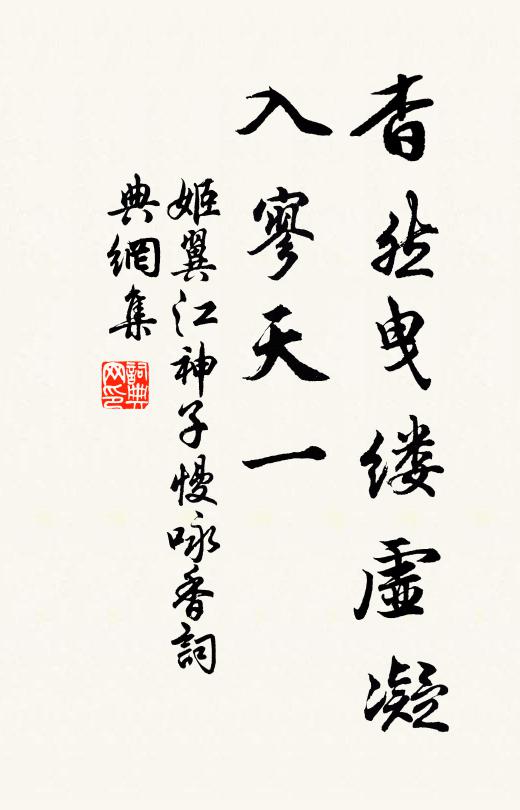 杳然曳缕虛凝
入寥天一
姬翼江神子慢咏香詞
典網集
詞典网印